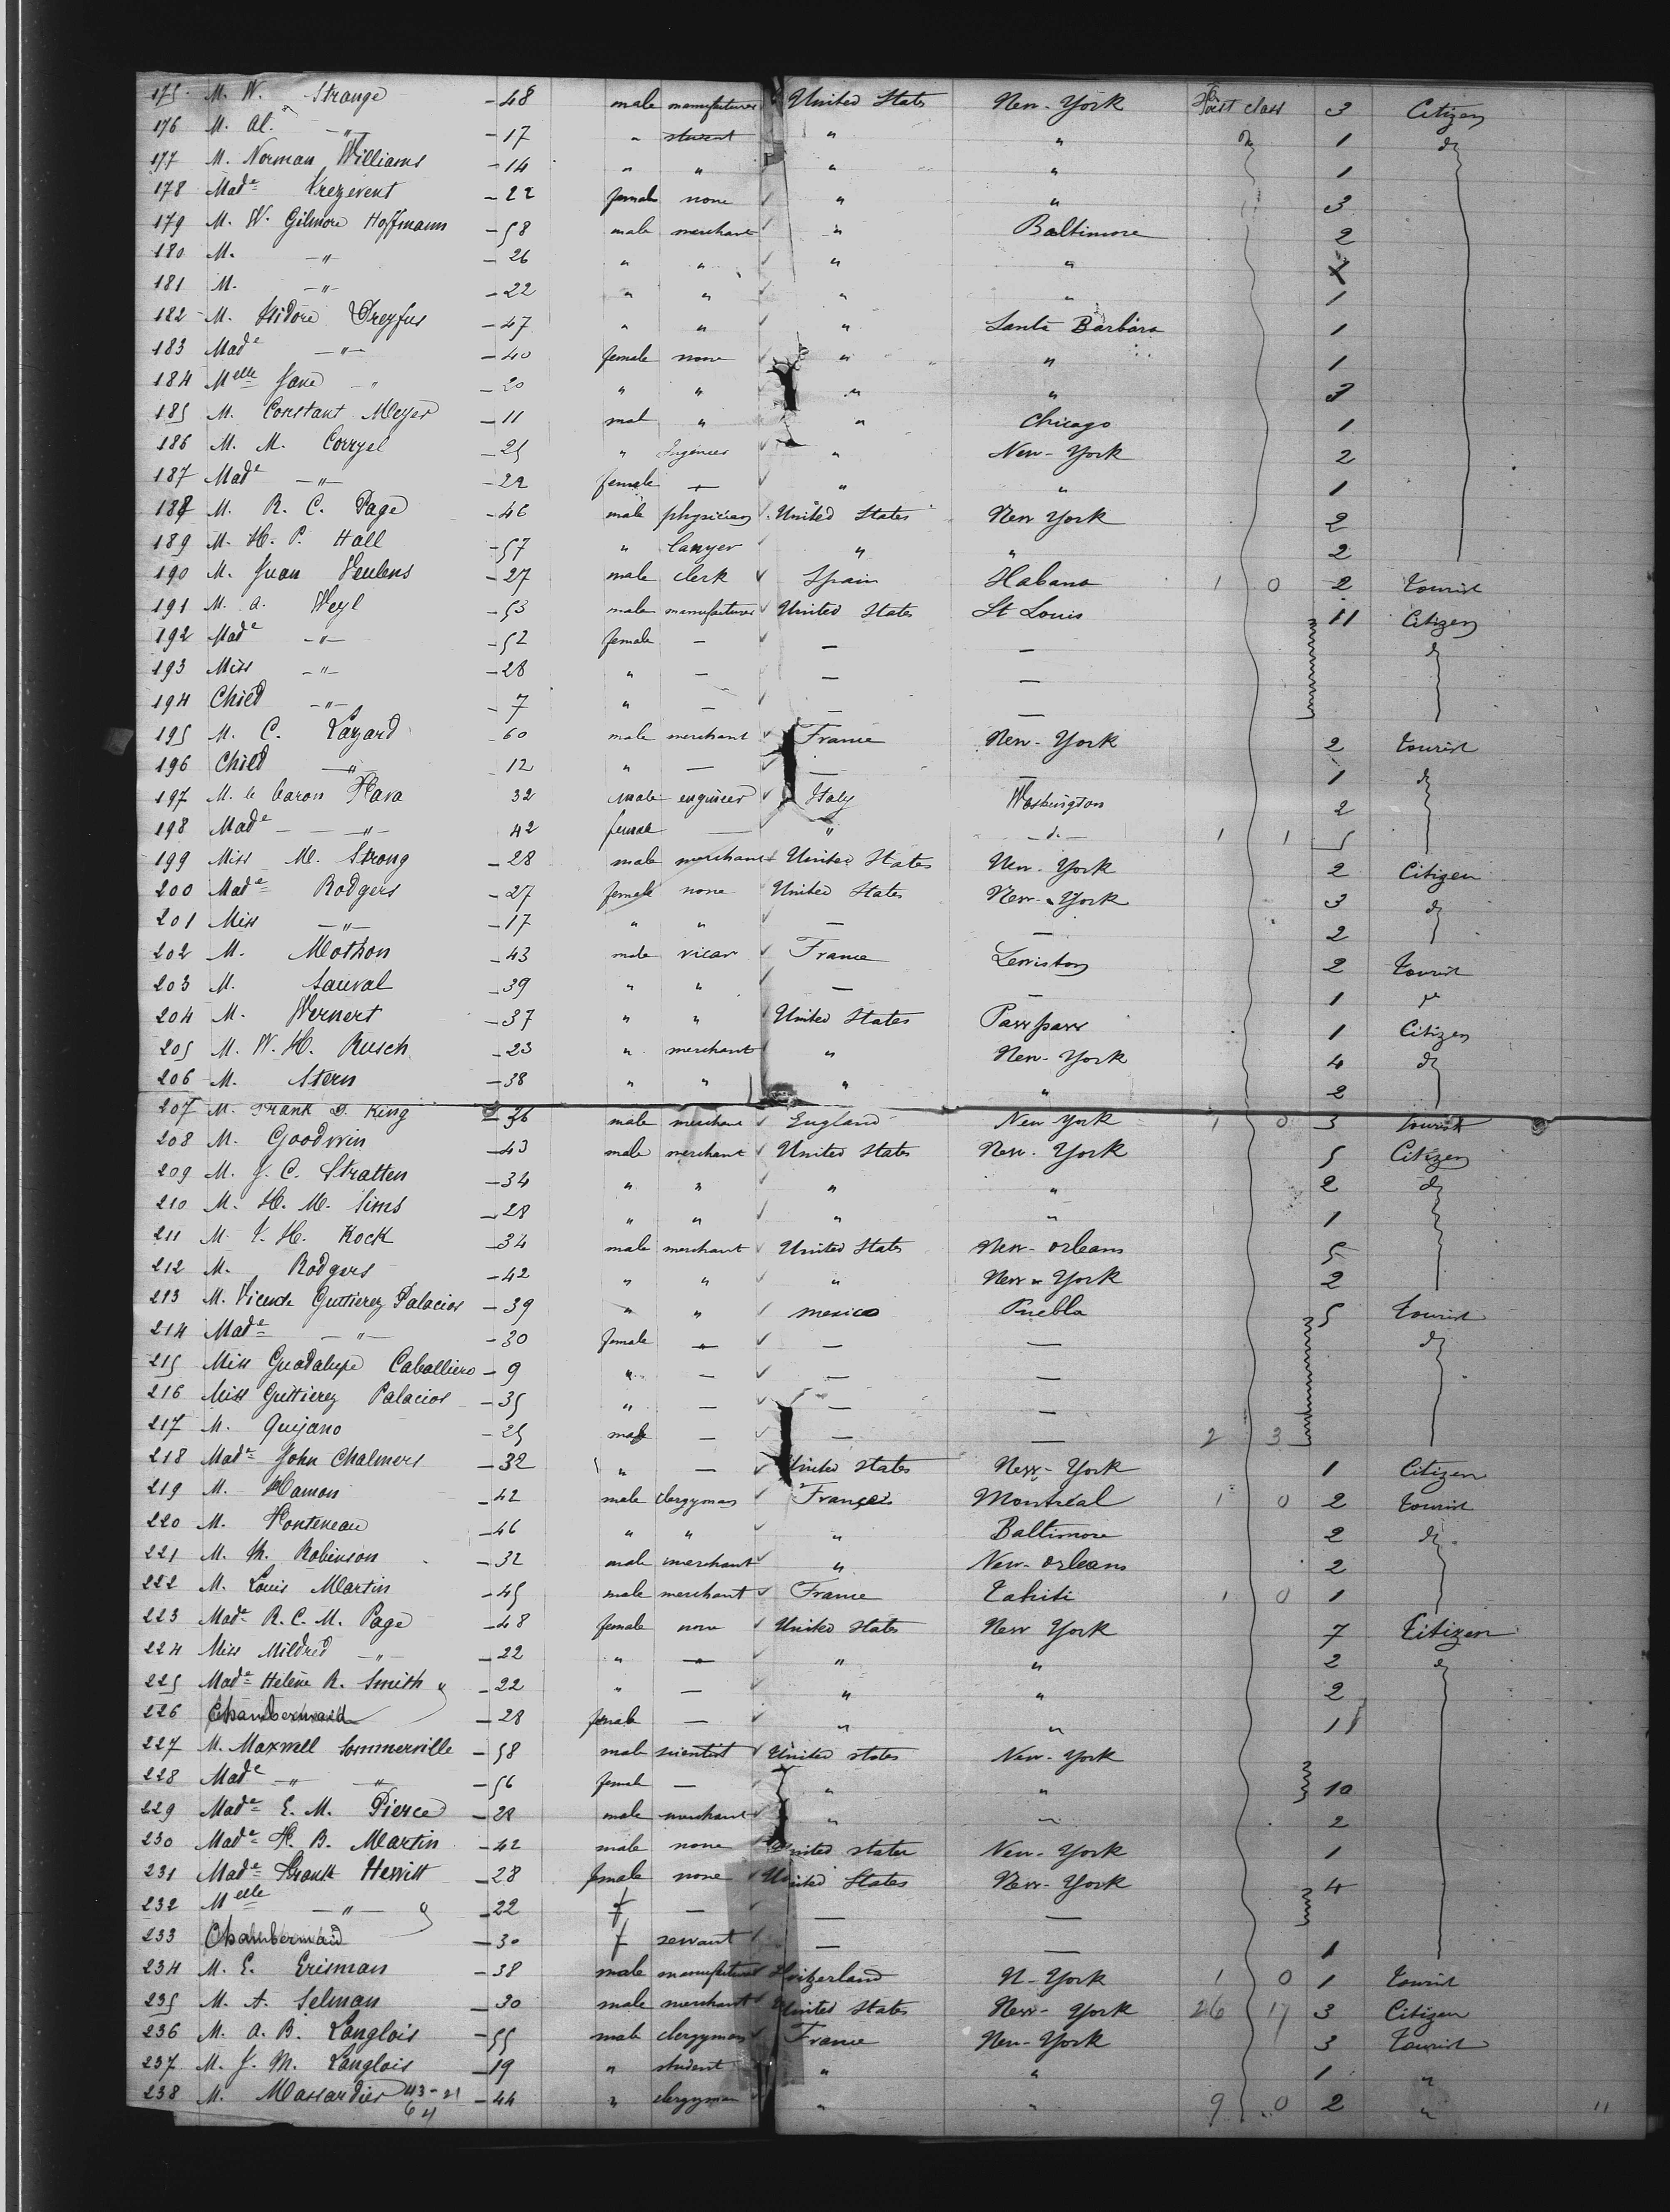 175 M. W. Strange - 48 male manufacturer United States New-York First class 3 Citizen
176 M. Al. -"- - 17 " student " " do 1 do
177 M. Norman Williams - 14 " " " " 1
178 Made Prezevent - 22 female none " " 3
179 M. W. Gilmore Hoffmann - 58 male merchant " Baltimore 2
180 M. -"- - 26 " " " "
181 M. -"- - 22 " " " " 1
182 M. Isidore Dreyfus - 47 " " " Santa Barbara 1
183 Made -"- - 40 female none " " 1
184 Melle Jane " - 20 " " " " 3
185 M. Constant Meyer - 11 mal " " Chicago 1
186 M. M. Corryel - 25 " Engineer " New-York 2
187 Made -"- - 22 female — " " 1
188 M. R. C. Page - 46 male physician United States New York 2
189 M. H. P. Hall - 57 " lawyer " " 2
190 M. Juan - 27 male clerk Spain Habana 1 0 2 tourist
191 M. A. Weyl - 53 male manufacturer United States St Louis 11 Citizen
192 Made -"- - 52 female — — — do
193 Miss -"- - 28 " — — —
194 Child -"- - 7 " — — —
195 M. C. Lazard 60 male merchant France New-York 2 tourist
196 Child -"- 12 " — — — 1 do
197 M. le baron Fava 32 male engineer Italy Washington 2
198 Made — -"- 42 female — " -d- 1 1 5
199 Miss M. Strong - 28 male merchant United States New-York 2 Citizen
200 Made Rodgers - 27 female none United States New-York 3 do
201 Miss -"- - 17 " " — — 2
202 M. Mothon - 43 male vicar France Lewiston 2 tourist
203 M. Sauval - 39 " " — — 1 do
204 M. Wernert - 37 " " United States 1 Citizen
205 M. W. H. Rusch - 23 " merchant " New-York 4 do
206 M. Stern - 38 " " " " 2
207 M. Frank D. King - 36 male merchant England New York 1 0 3 tourist
208 M. Goodwin - 43 male merchant United States New-York 5 Citizen
209 M. J. C. Stratten - 34 " " " " 2 do
210 M. H. M. Sims - 28 " " " " 1
211 M. V. H. Rock - 34 male merchant United States New-orleans 5
212 M. Rodgers - 42 " " " New-York 2
213 M. Vicente Guttierez Palacios - 39 " " mexico Puebla 5 tourist
214 Made -"- - 30 female — — — do
215 Miss Guadalupe Caballiero - 9 " — — —
216 Miss Guttierez Palacios - 35 " — — —
217 M. Quijano - 25 male — — — 2 3
218 Made John Chalmers - 32 " — United States New-York 1 Citizen
219 M. Hamon - 42 male clergyman France Montréal 1 0 2 tourist
220 M. Fonteneau - 46 " " " Baltimore 2 do
221 M. M. Robinson - 32 male merchant " New-orleans 2
222 M. Louis Martin - 45 male merchant France Tahiti 1 0 1
223 Made R. C. M. Page - 48 female none United States New York 7 Citizen
224 Miss Mildred -"- - 22 " — " " 2 do
225 Made Hélène R. Smith - 22 " — " " 2
226 Chambermaid - 28 female — " " 1
227 M. Maxwell Sommerville - 58 male scientist United states New-York
228 Made -"- -"- - 56 female — " " 10
229 Made E. M. Pierce - 28 male merchant " " 2
230 Made H. B. Martin - 42 male none United states New-York 1
231 Made Frank Hewitt - 28 female none United States New-York 4
232 Melle -"- - 22 f — — —
233 Chambermaid - 30 f servant — — 1
234 M. E. Erisman - 38 male manufacturer Switzerland N-York 1 0 1 tourist
235 M. A. Selman - 30 male merchant United States New-York 26 17 3 Citizen
236 M. A. B. Langlois - 55 male clergyman France New-York 3 tourist
237 M. J. M. Langlois - 19 " student " " 1 "
238 M. Massardier 43-21 - 44 " clergyman " " 9 0 2 " 11
64